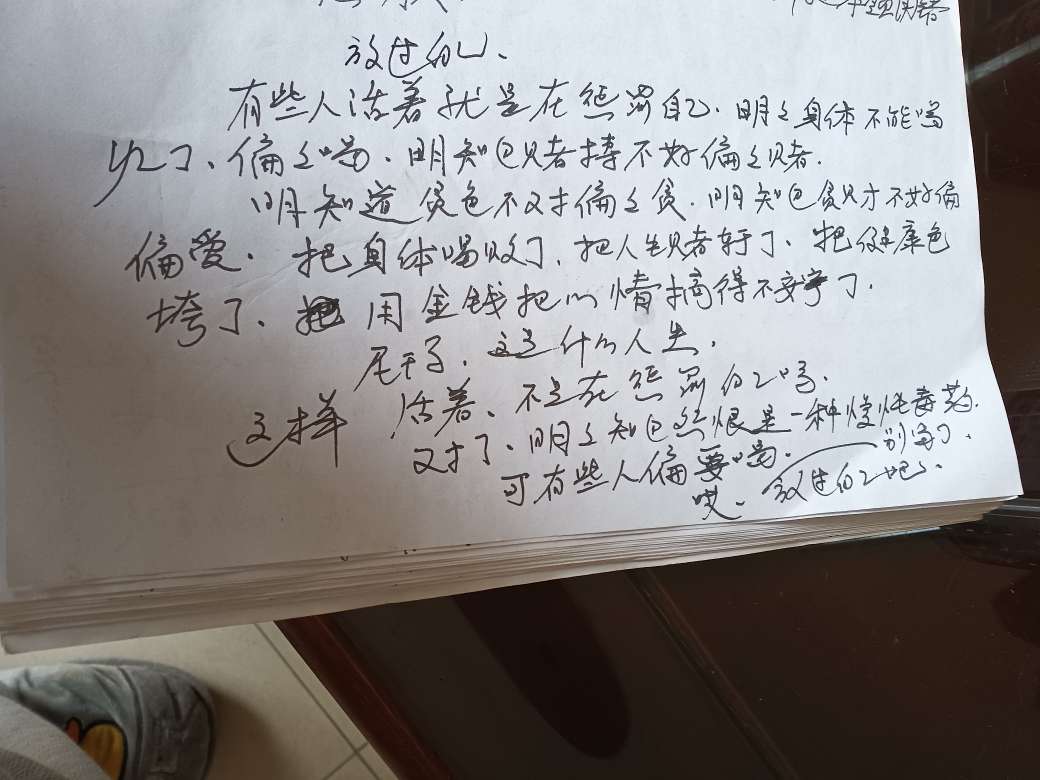 放过自己、
有些人活着就是在惩罚自己．明明身体不能喝
偏偏喝．明知自己赌博不好偏偏赌．
明知道贪色不对偏偏贪．明知自己贪财不好偏
偏爱．把身体喝败了、把人生赌弃了、把健康色
垮了、把用金钱把心情搞得不安宁了．
这是什么人生．
这样活着、不是在惩罚自己吗．
对了、明明知自己怨恨是一种慢性毒药．
可有些人偏要喝．别喝了．
哎．放过自己吧．